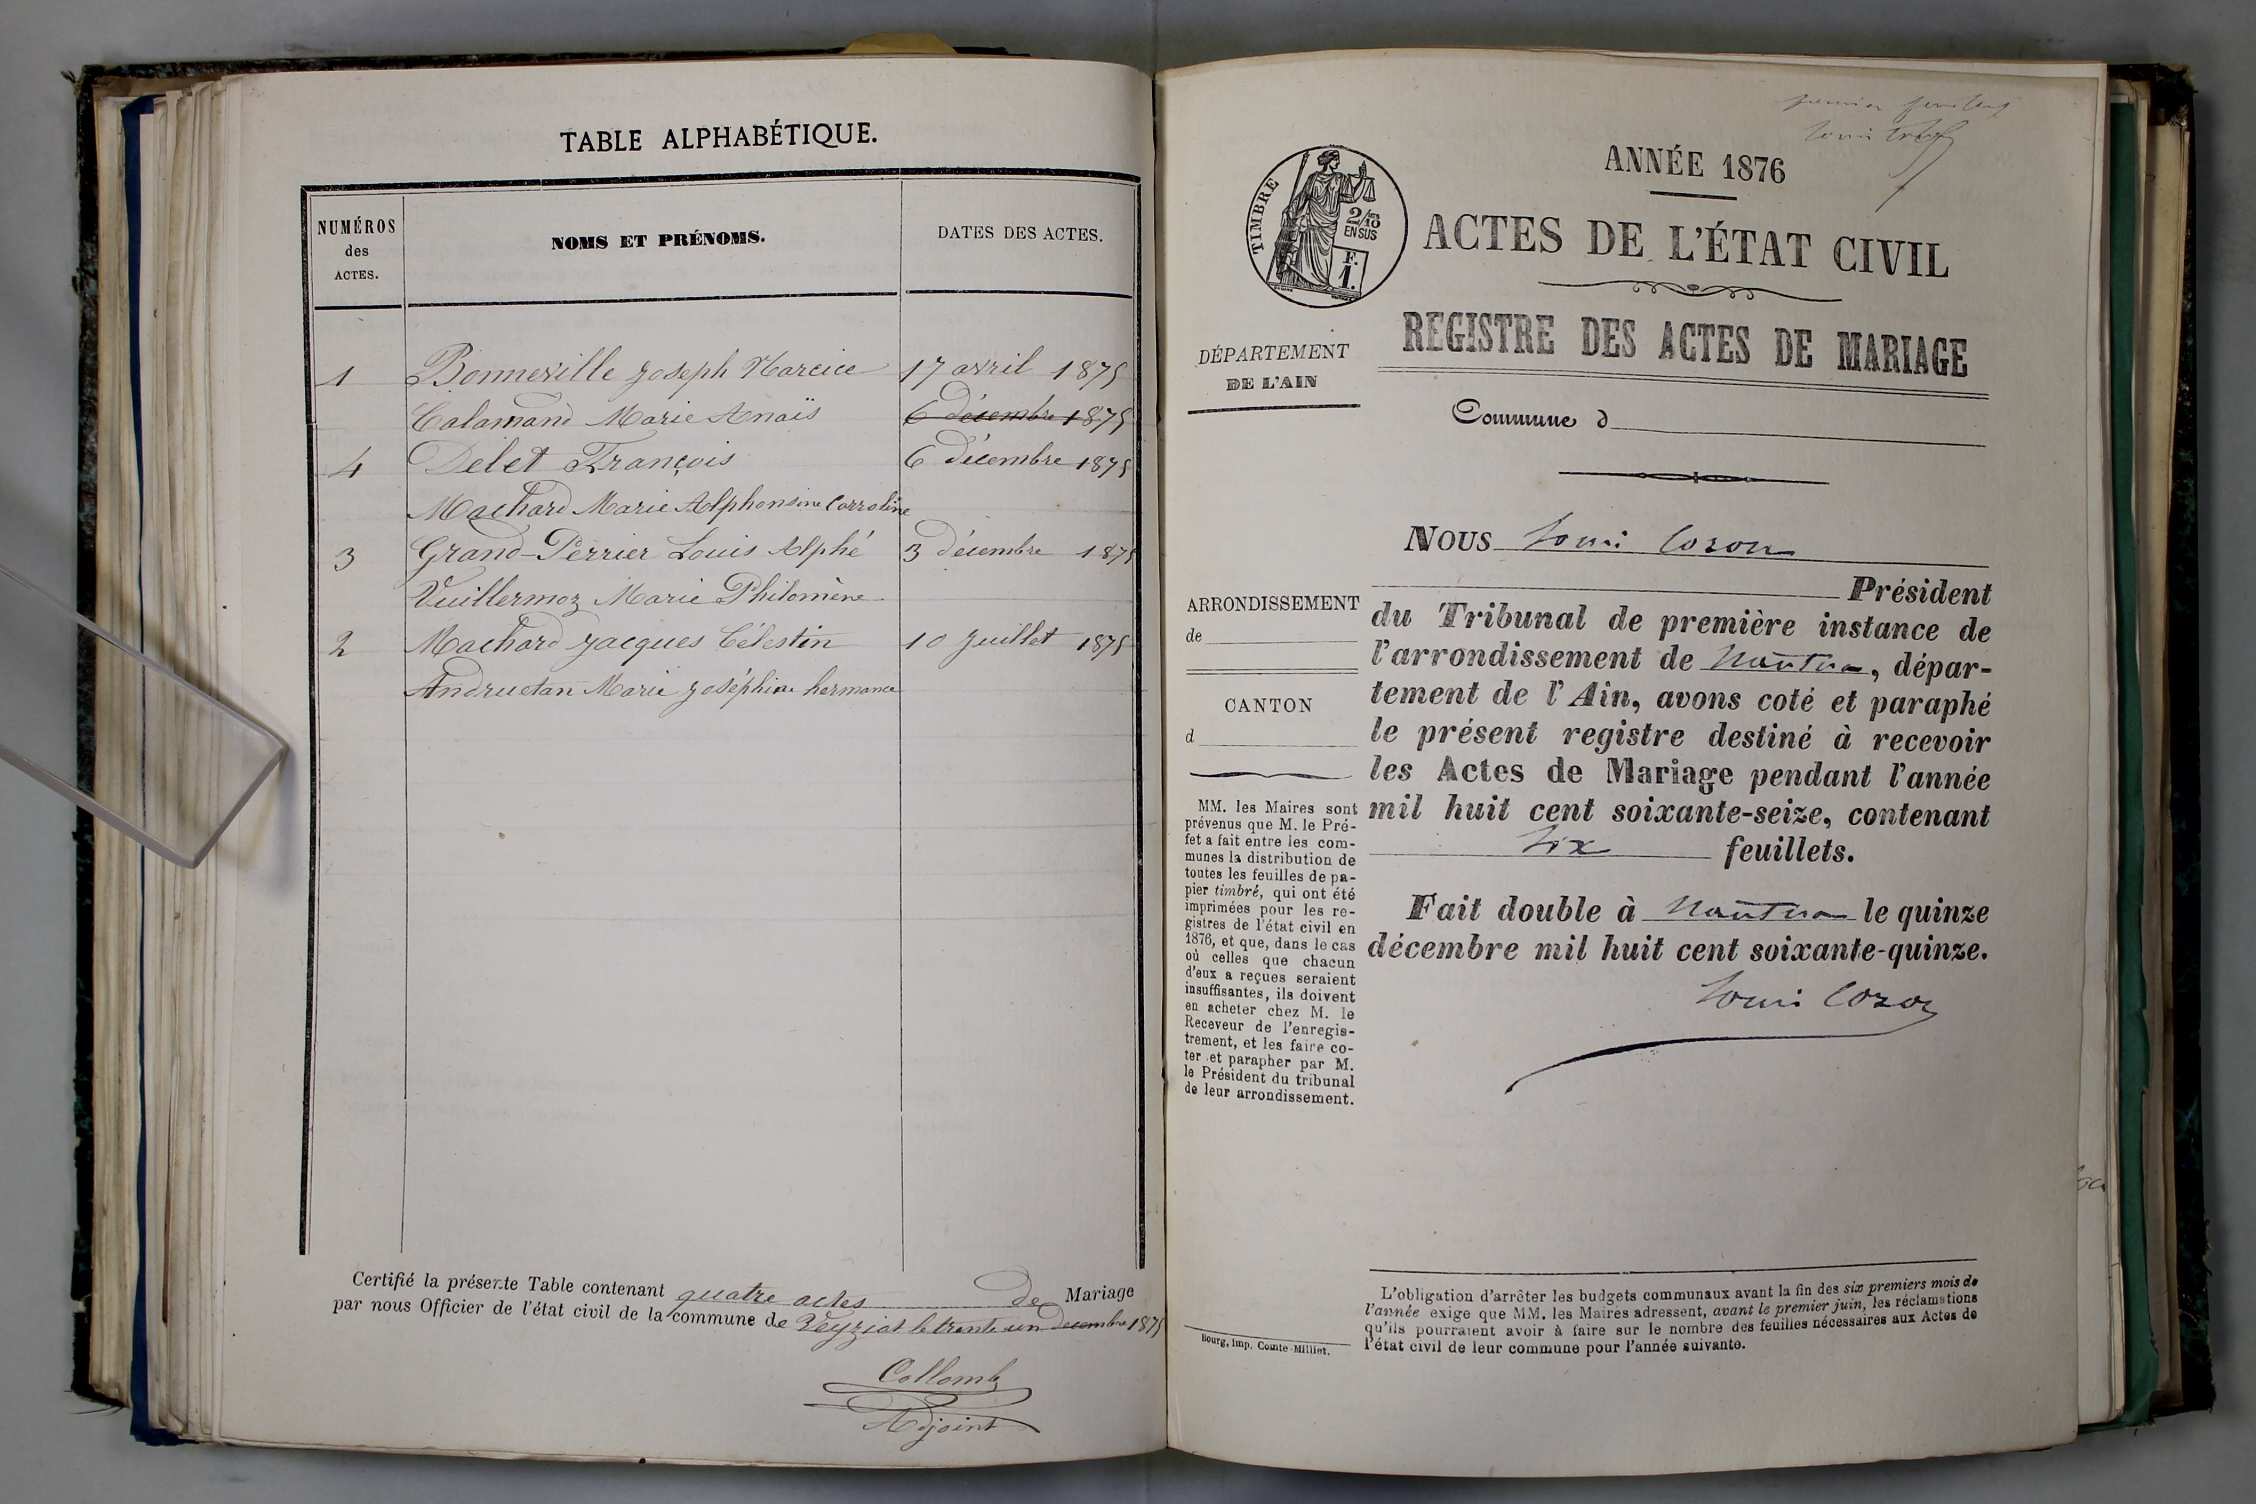 TABLE ALPHABÉTIQUE.
NUMÉROS
des
ACTES.
NOMS ET PRÉNOMS.
DATES DES ACTES.
1 Bonneville Joseph Narcice 17 avril 1875
Calamand Marie Anaïs 6 décembre 1875
4 Delet François 6 décembre 1875
Machard Marie Alphonsine Carroline
3 Grand-Perrier Louis Alphé 3 décembre 1875
Vuillermoz Marie Philomène
2 Machard Jacques Célestin 10 Juillet 1875
Andruétan Marie Joséphine hermance
Certifié la présente Table contenant quatre actes de Mariage
par nous Officier de l'état civil de la commune de Veyziat le trente un Decembre 1875
Collomb
Adjoint
Louis
ANNÉE 1876
TIMBRE
2/10
EN SUS
F.
1.
ACTES DE L'ÉTAT CIVIL
REGISTRE DES ACTES DE MARIAGE
DÉPARTEMENT
DE L'AIN
Commune d
Nous Louis Cozon
Président
du Tribunal de première instance de
l'arrondissement de Nantua, dépar-
tement de l'Ain, avons coté et paraphé
le présent registre destiné à recevoir
les Actes de Mariage pendant l'année
mil huit cent soixante-seize, contenant
six feuillets.
Fait double à Nantua le quinze
décembre mil huit cent soixante-quinze.
Louis Cozon
ARRONDISSEMENT
de
CANTON
d
MM. les Maires sont
prévenus que M. le Pré-
fet a fait entre les com-
munes la distribution de
toutes les feuilles de pa-
pier timbré, qui ont été
imprimées pour les re-
gistres de l'état civil en
1876, et que, dans le cas
où celles que chacun
d'eux a reçues seraient
insuffisantes, ils doivent
en acheter chez M. le
Receveur de l'enregis-
trement, et les faire co-
ter et parapher par M.
le Président du tribunal
de leur arrondissement.
Bourg, imp. Comte-Milliet.
L'obligation d'arrêter les budgets communaux avant la fin des six premiers mois de
l'année exige que MM. les Maires adressent, avant le premier juin, les réclamations
qu'ils pourraient avoir à faire sur le nombre des feuilles nécessaires aux Actes de
l'état civil de leur commune pour l'année suivante.